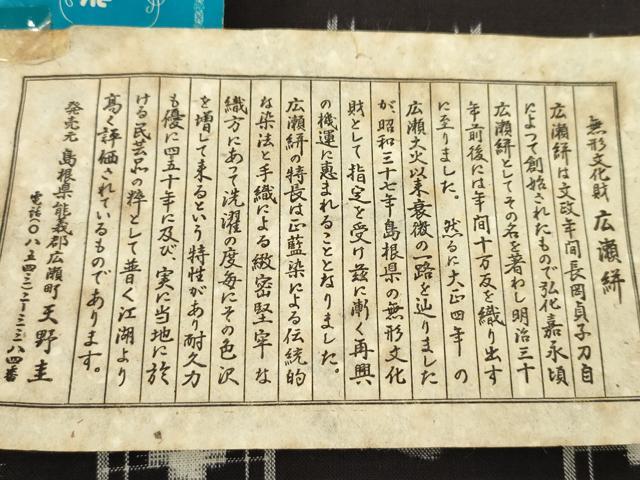 無形文化財 広瀬絣
広瀬絣は文政年間長岡貞子刀自
によつて創始されたもので弘化嘉永頃
広瀬絣としてその名を著わし明治三十
年前後には年間十万反を織り出す
に至りました。然るに大正四年の
広瀬大火以来衰微の一路を辿りました
が、昭和三十七年島根県の無形文化
財として指定を受け玆に漸く再興
の機運に恵まれることとなりました。
広瀬絣の特長は正藍染による伝統的
な染法と手織による緻密堅牢な
織方にあって洗濯の度毎にその色沢
を増して来るという特性があり耐久力
も優に四五十年に及び、実に当地に於
ける民芸品の粋として普く江湖より
高く評価されているものであります。
発売元 島根県能義郡広瀬町 天野圭
電話(〇八五四三)二ー三三八四番